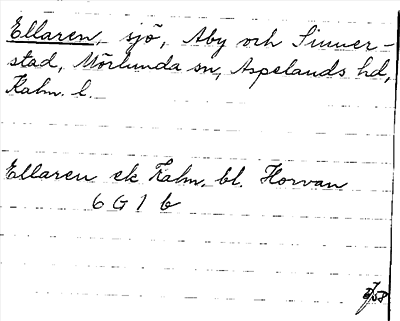 Ellaren, sjö, Åby och Sinner-
stad, Mörlunda sn, Aspelands hd,
Kalm. l.
Ellaren ek Kalm. bl. Horvan
6 G 1 b